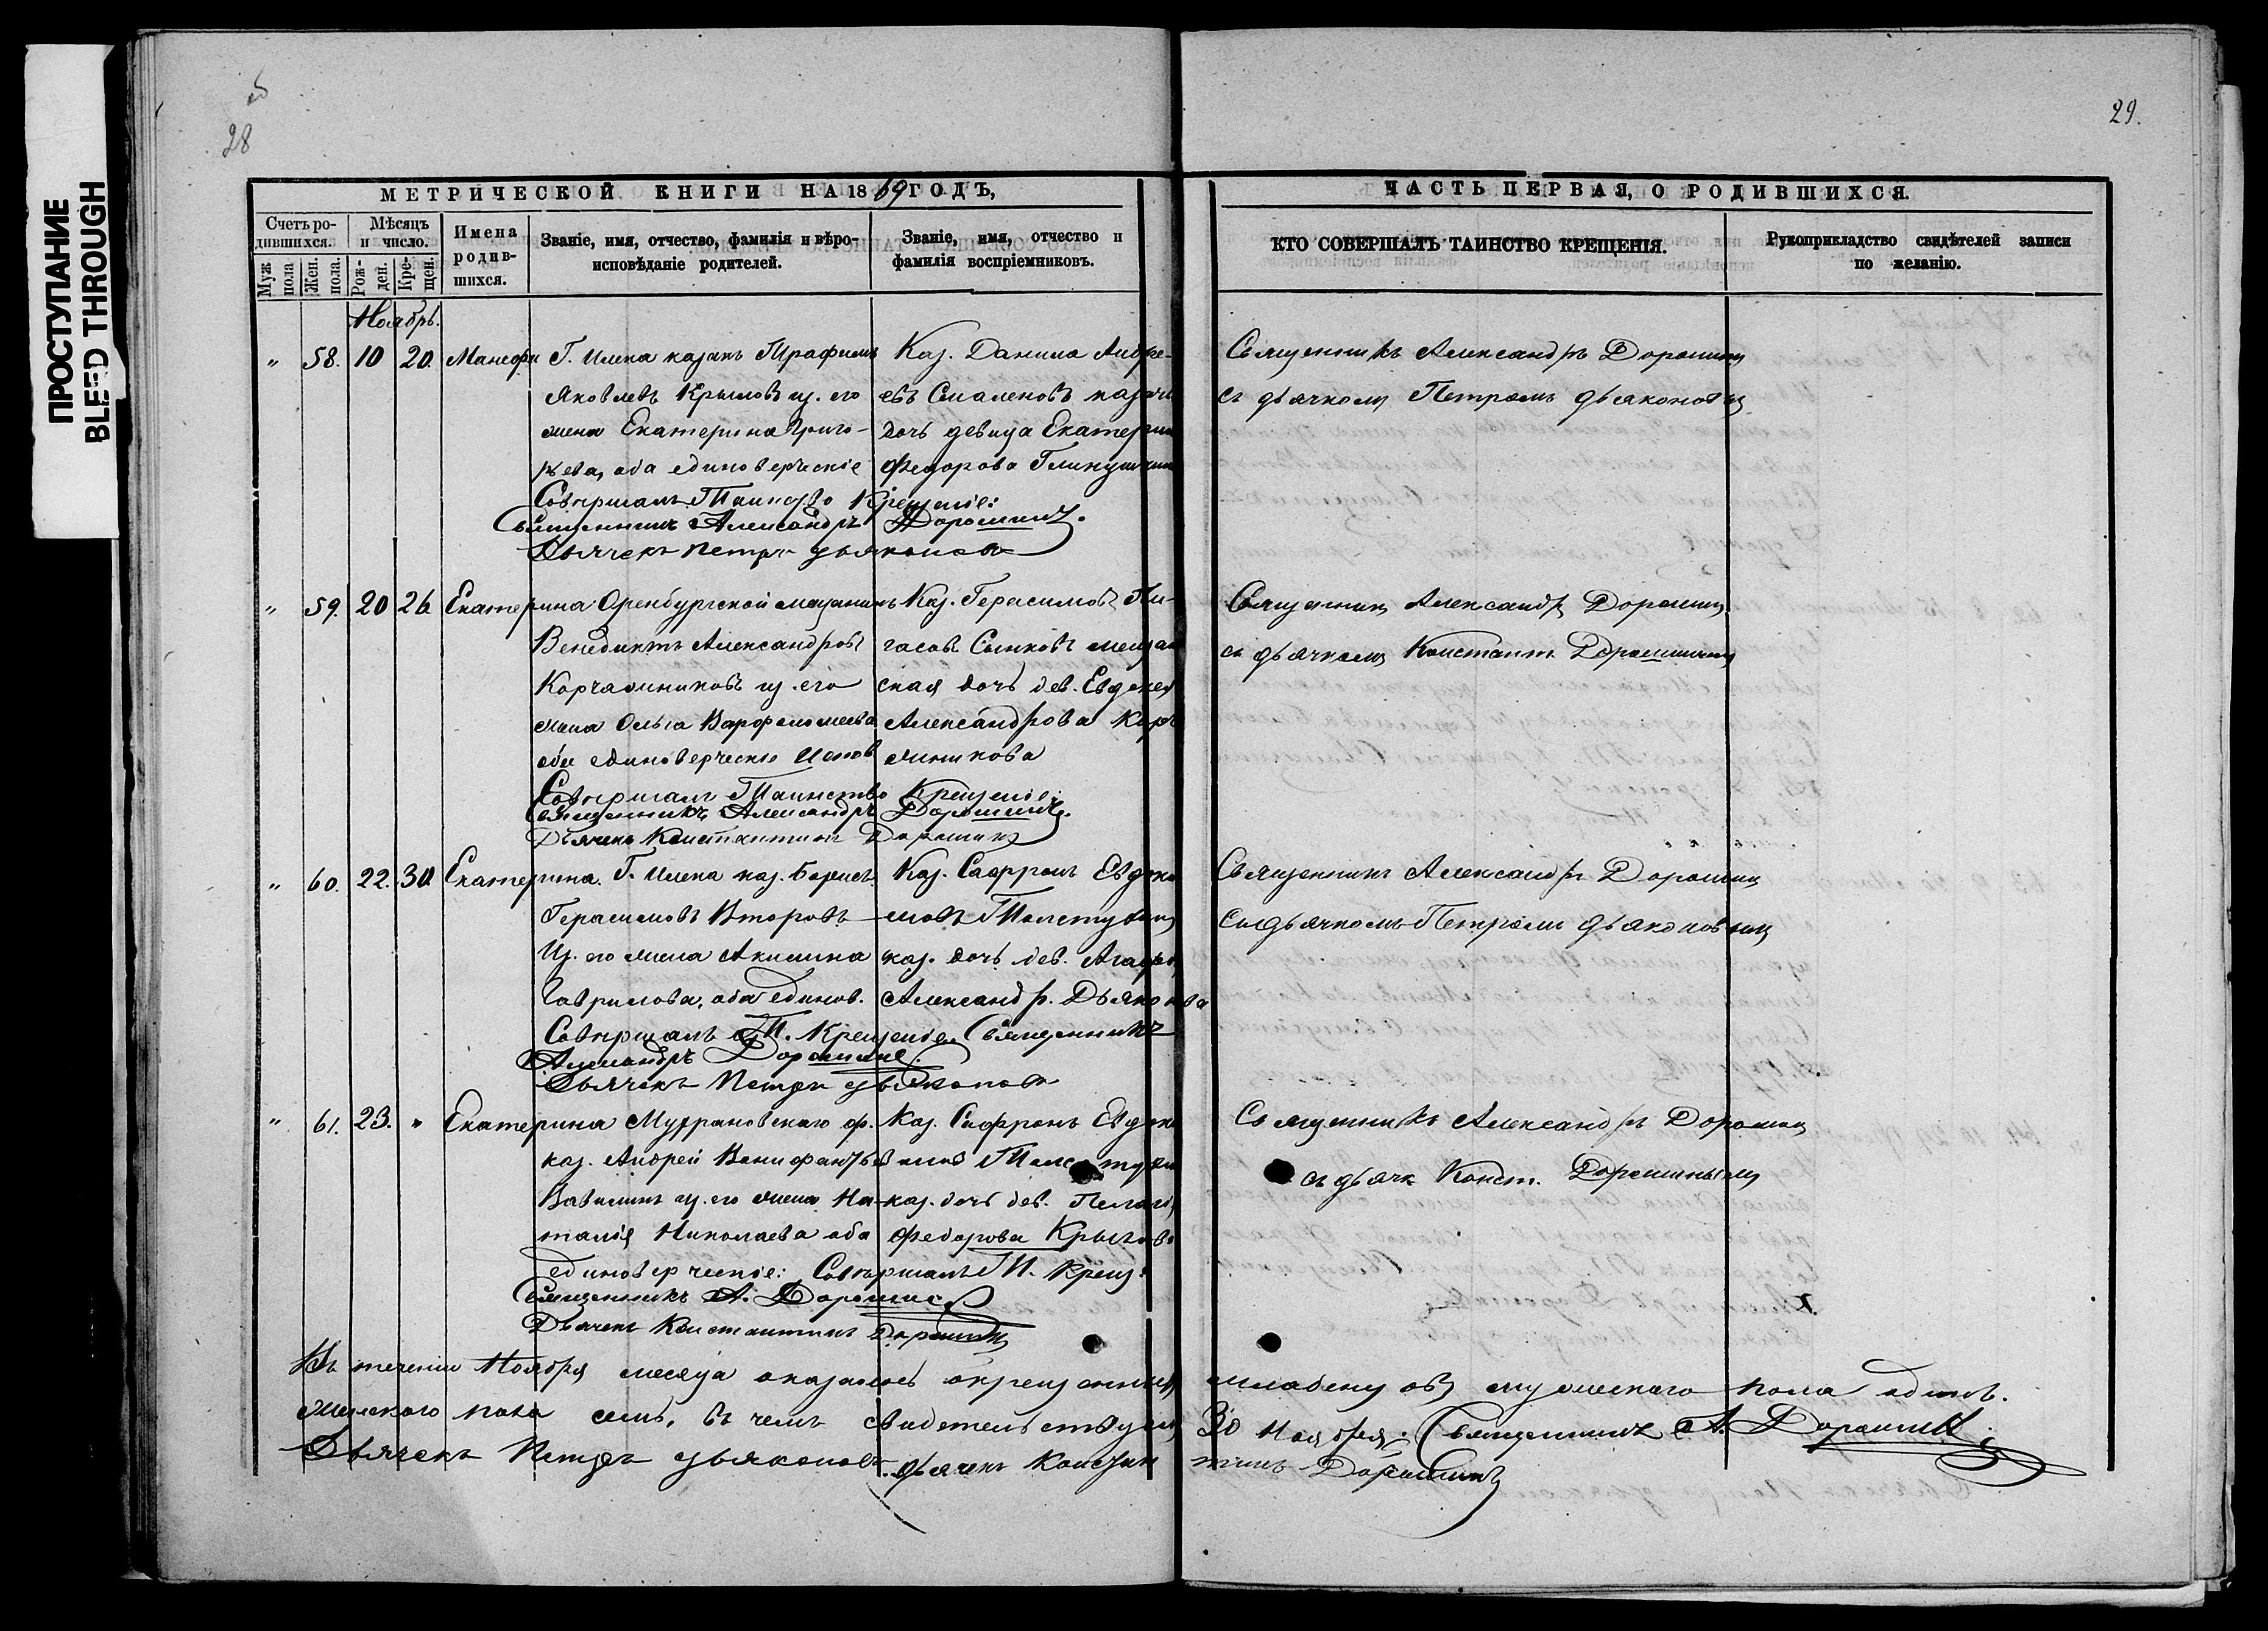 ПРОСТУПАНИЕ
BLEED THROUGH
28
29.
МЕТРИЧЕСКОЙ КНИГИ НА 1869 ГОДЪ,
ЧАСТЬ ПЕРВАЯ, О РОДИВШИХСЯ.
Счетъ родившихся.
Муж. пола
Жен. пола.
Мѣсяцъ и число.
Рожден.
Крещен.
Имена родившихся.
Званіе, имя, отчество, фамилія и вѣроисповѣданіе родителей.
Званіе, имя, отчество и фамилія воспріемниковъ.
КТО СОВЕРШАЛЪ ТАИНСТВО КРЕЩЕНІЯ.
Рукоприкладство свидѣтелей записи по желанію.
Ноябрь.
" 58. 10 20. Манефа
Г. Илека казакъ Трафимъ
Яковлевъ Крыловъ и з. его
жена Екатерина Григо-
рьева, оба единоверческіе
Каз. Данила Андре-
евъ казачья
дочь девица Екатерина
Федорова
Священникъ Александръ Дорошинъ
съ дьячкомъ Петромъ Дьяконовым
Совершалъ Таинство Крещеніе:
Священникъ Александръ Дорошинъ.
Дьячекъ Петръ Дьяконовъ
" 59. 20 26 Екатерина
Оренбургской мещанинъ
Венедиктъ Александровъ
Корчажниковъ и з. его
жена Ольга Варфоломеева
оба единоверческіе
Каз. Герасимовъ
Сычковъ мещан
ская дочь дев. Евдокея
Александрова Корч
жникова
Священникъ Александръ Дорошинъ
съ дьячкомъ Констант. Дорошинымъ
Совершалъ Таинство Крещеніе:
Священникъ Александръ Дорошинъ.
Дьячекъ Константинъ Дорошинъ
" 60. 22. 30. Екатерина.
Г. Илека каз. Борисъ
Герасимовъ Второвъ
из. его жена Акилина
Гаврилова, оба единов.
Каз. Сафронъ Евдоки
мовъ Толстухинъ
каз. дочь дев. Агафья
Александр. Дьяконова
Священникъ Александръ Дорошинъ
съ дьячкомъ Петромъ Дьяконовым
Совершалъ Т. Крещеніе Священникъ
Александръ Дорошинъ.
Дьячекъ Петръ Дьяконовъ
" 61. 23. " Екатерина
Мухрановскаго ф.
каз. Андрей Вонифантьев
Вавилинъ из. его жена На-
талія Николаева оба
единоверческіе:
Каз. Сафронъ Евдоки
мовъ Толстухин
каз. дочь дев. Пелагія
Федорова Крылова
Священникъ Александръ Дорошинъ
съ дьячк Конст. Дорошинымъ
Совершалъ Т. Крещ:
Священникъ А. Дорошинъ
Дьячекъ Константинъ Дорошинъ
Въ теченіи Ноября месяца оказалось окрещенных младенцовъ мужескаго пола одинъ.
женского пола семь, въ чемъ свидетельствуемъ 30 Ноября: Священникъ А. Дорошинъ.
Дьячекъ Петръ Дьяконовъ. Дьячекъ Констан тинъ Дорошинъ